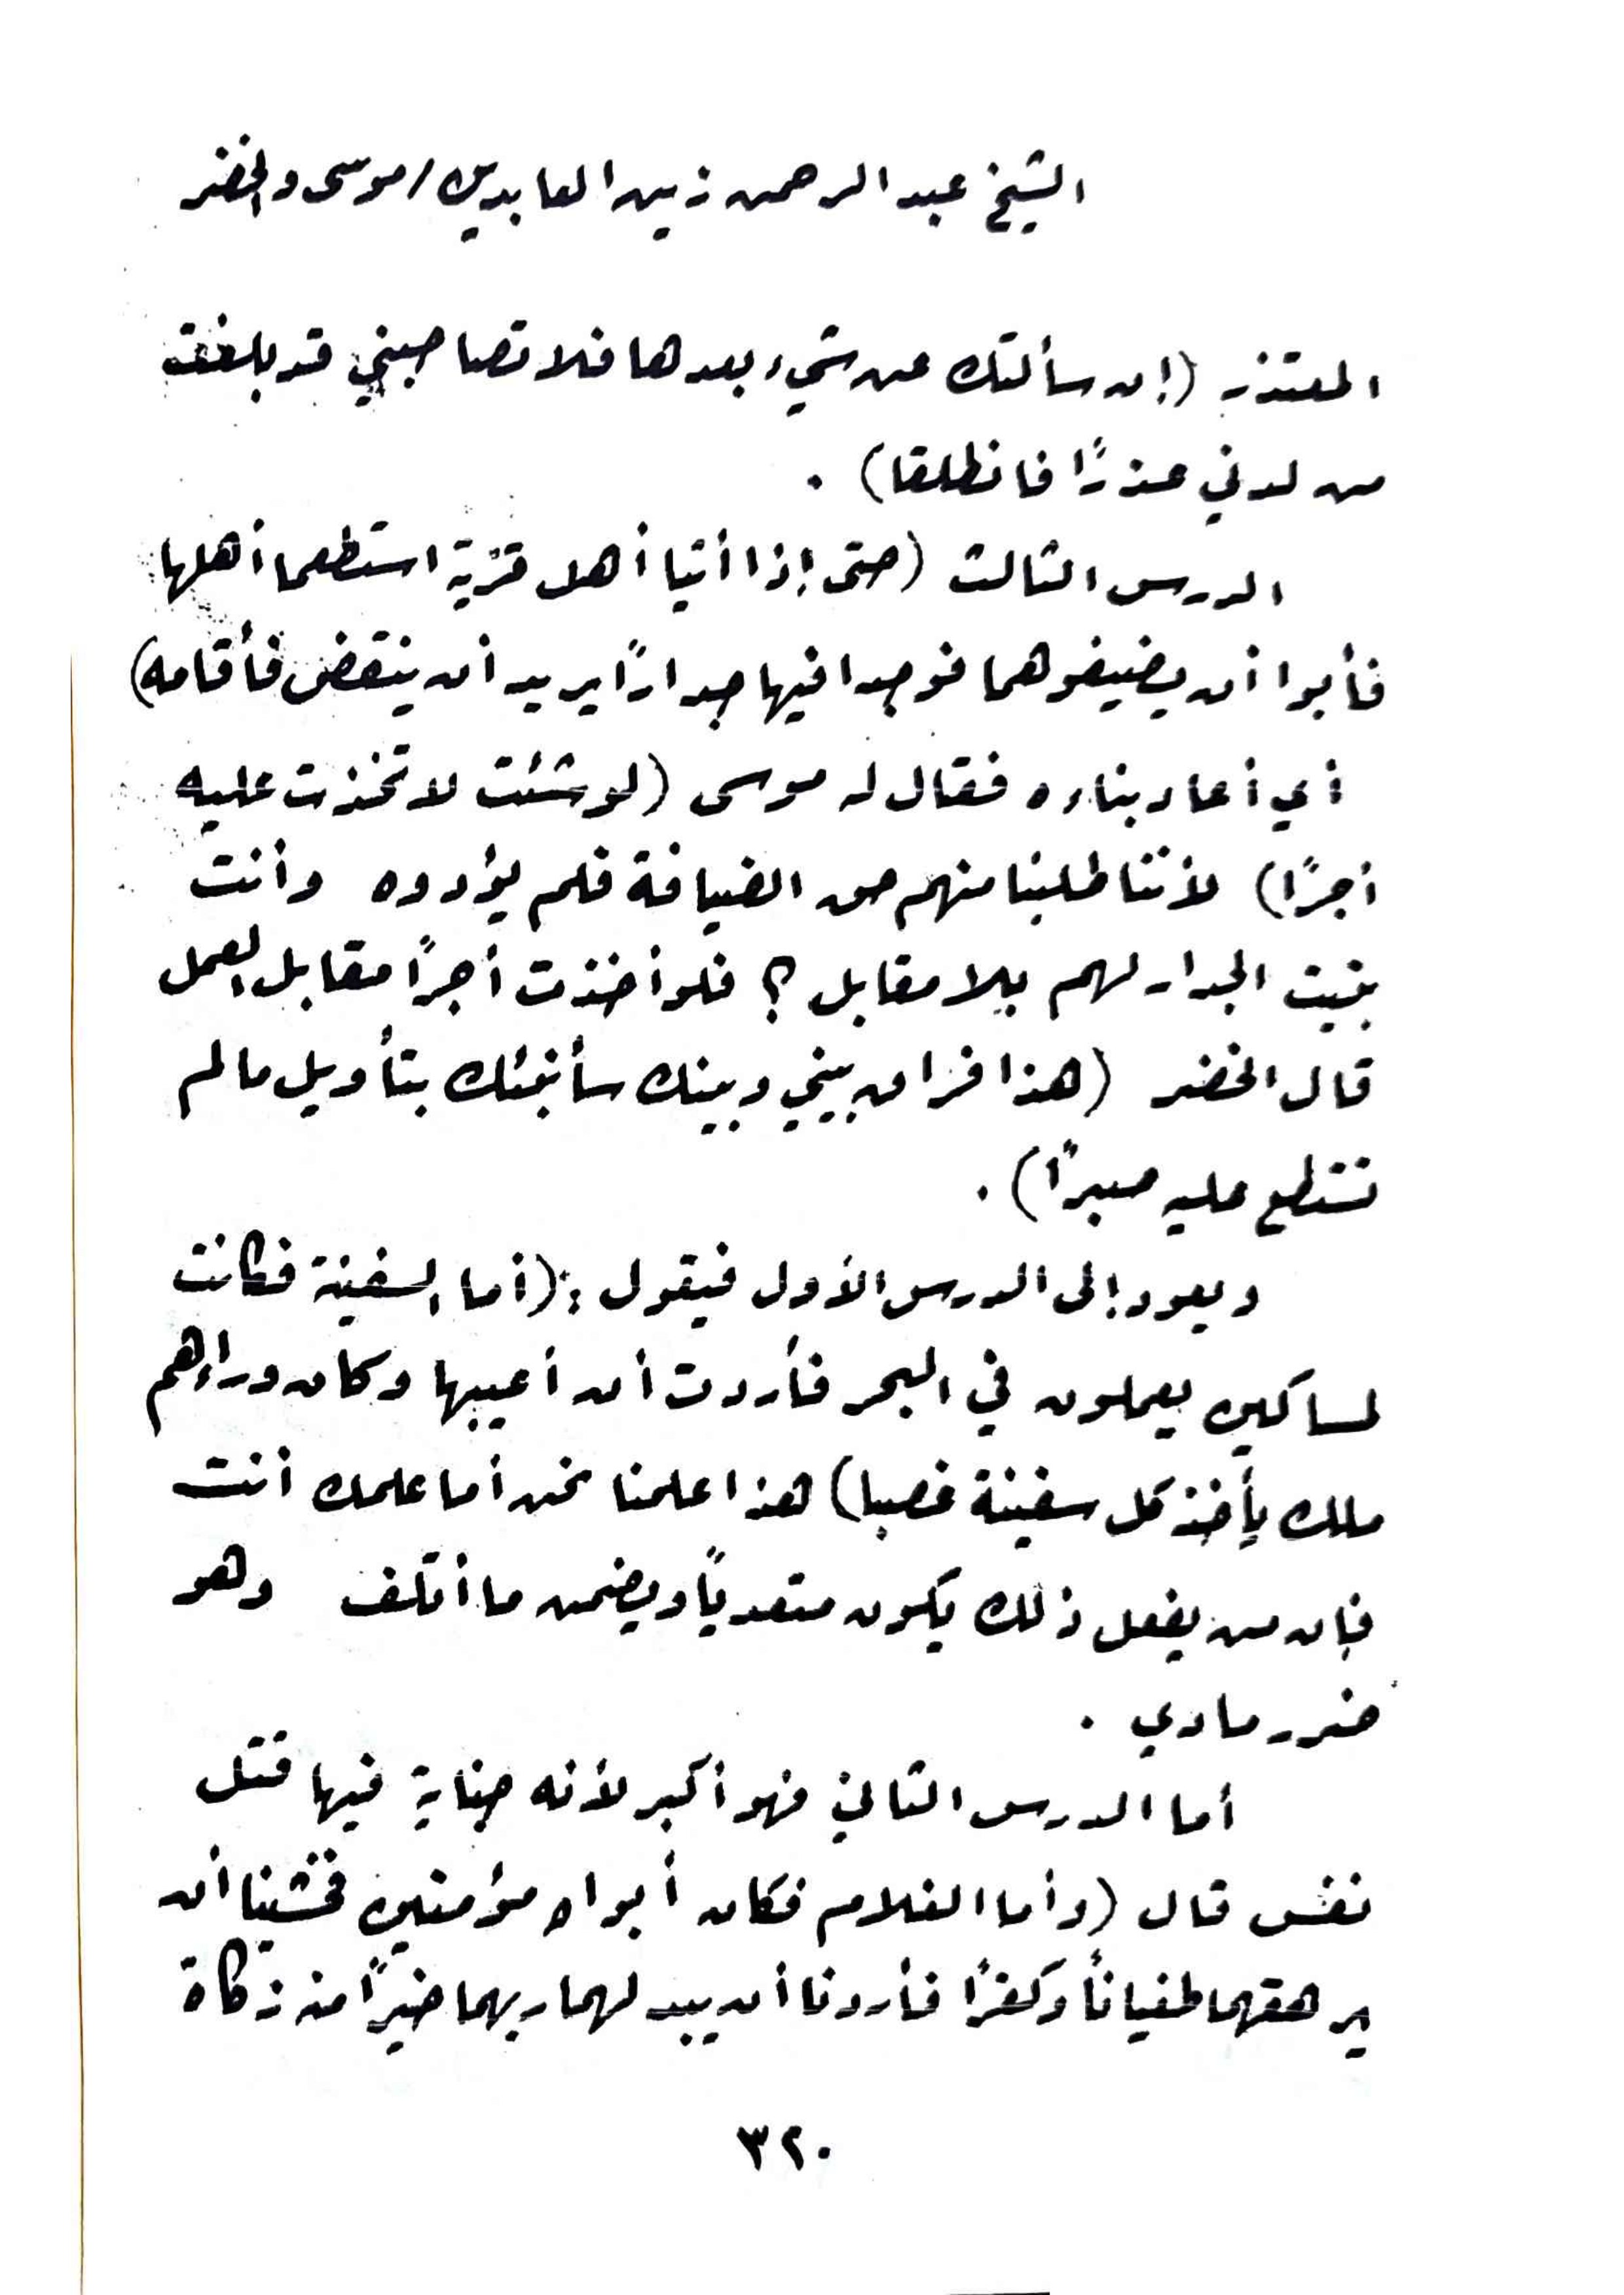 الشيخ عبد الرحمن زين العابدين / موسى والخضر
المعتذر (إن سألتك عن شيء بعدها فلا تصاحبني قد بلغت
من لدني عذرًا فانطلقا) .
الدرس الثالث (حتى إذا أتيا أهل قرية استطعما أهلها
فأبوا أن يضيفوهما فوجدا فيها جدارًا يريد أن ينقض فأقامه)
أي أعاد بناءه فقال له موسى (لو شئت لاتخذت عليه
أجرًا) لأننا طلبنا منهم حق الضيافة فلم يؤدوه وأنت
بنيت الجدار لهم بلا مقابل ؟ فلو أخذت أجرًا مقابل العمل
قال الخضر (هذا فراق بيني وبينك سأنبئك بتأويل ما لم
تستطع عليه صبرًا) .
ويعود إلى الدرس الأول فيقول : (أما السفينة فكانت
لمساكين يعملون في البحر فأردت أن أعيبها وكان وراءهم
ملك يأخذ كل سفينة غصبا) هذا علمنا نحن أما علمك أنت
فإن من يفعل ذلك يكون متعديًا ويضمن ما أتلف وهو
ضرر مادي .
أما الدرس الثاني فهو أكبر لأنه جناية فيها قتل
نفس قال (وأما الغلام فكان أبواه مؤمنين فخشينا أن
يرهقهما طغيانًا وكفرًا فأردنا أن يبدلهما ربهما خيرًا منه زكاة
٣٢٠